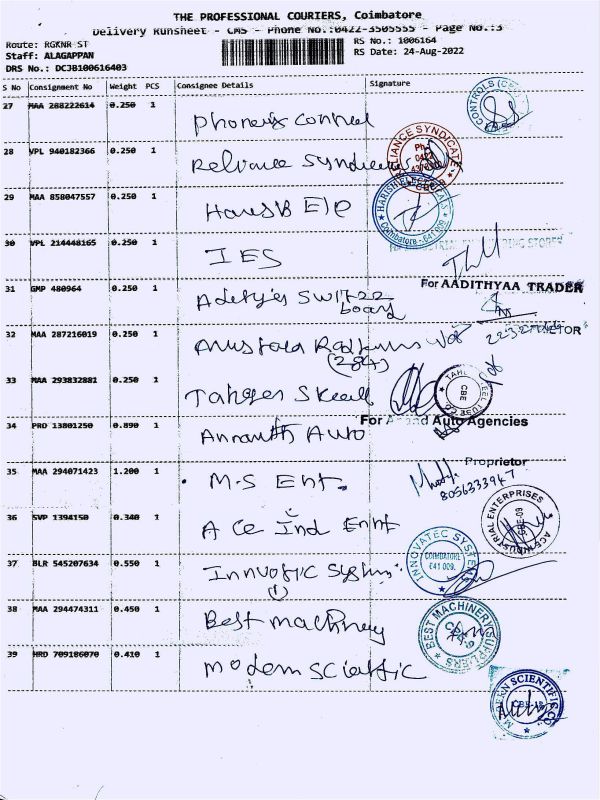 THE PROFESSIONAL COURIERS, Coimbatore
Delivery Runsheet - CMS - Phone No.:0422-3505555 - Page No.:3
Route: RGKNR ST
RS No.: 1006164
Staff: ALAGAPPAN
RS Date: 24-Aug-2022
DRS No.: DCJB100616403
S No Consignment No Weight PCS Consignee Details Signature
27 MAA 288222614 0.250 1
CONTROLS
28 VPL 940182366 0.250 1 Reliance Syndicate
RELIANCE SYNDICATE
Ph:
0422
29 MAA 858047557 0.250 1
HARISH ELECTRICALS
Coimbatore - 641 009.
30 VPL 214448165 0.250 1 IES
31 GMP 480964 0.250 1
board
For AADITHYAA TRADER
32 MAA 287216019 0.250 1
(284)
33 MAA 293832881 0.250 1
CBE
34 PRD 13801250 0.890 1 Ananth Auto
For Anand Auto Agencies
35 MAA 294071423 1.200 1 M.S Ent.
Proprietor
8056333947
36 SVP 1394150 0.340 1 Ace Ind Ent
ACE INDUSTRIAL ENTERPRISES
CBE-09
37 BLR 545207634 0.550 1
(1)
INNOVATEC SYSTEMS
COIMBATORE
641 009.
38 MAA 294474311 0.450 1 Best machinery
BEST MACHINERY SUPPLIERS
39 HRD 709186070 0.410 1 Modern Scientific
MODERN SCIENTIFIC CO.
CBE-18